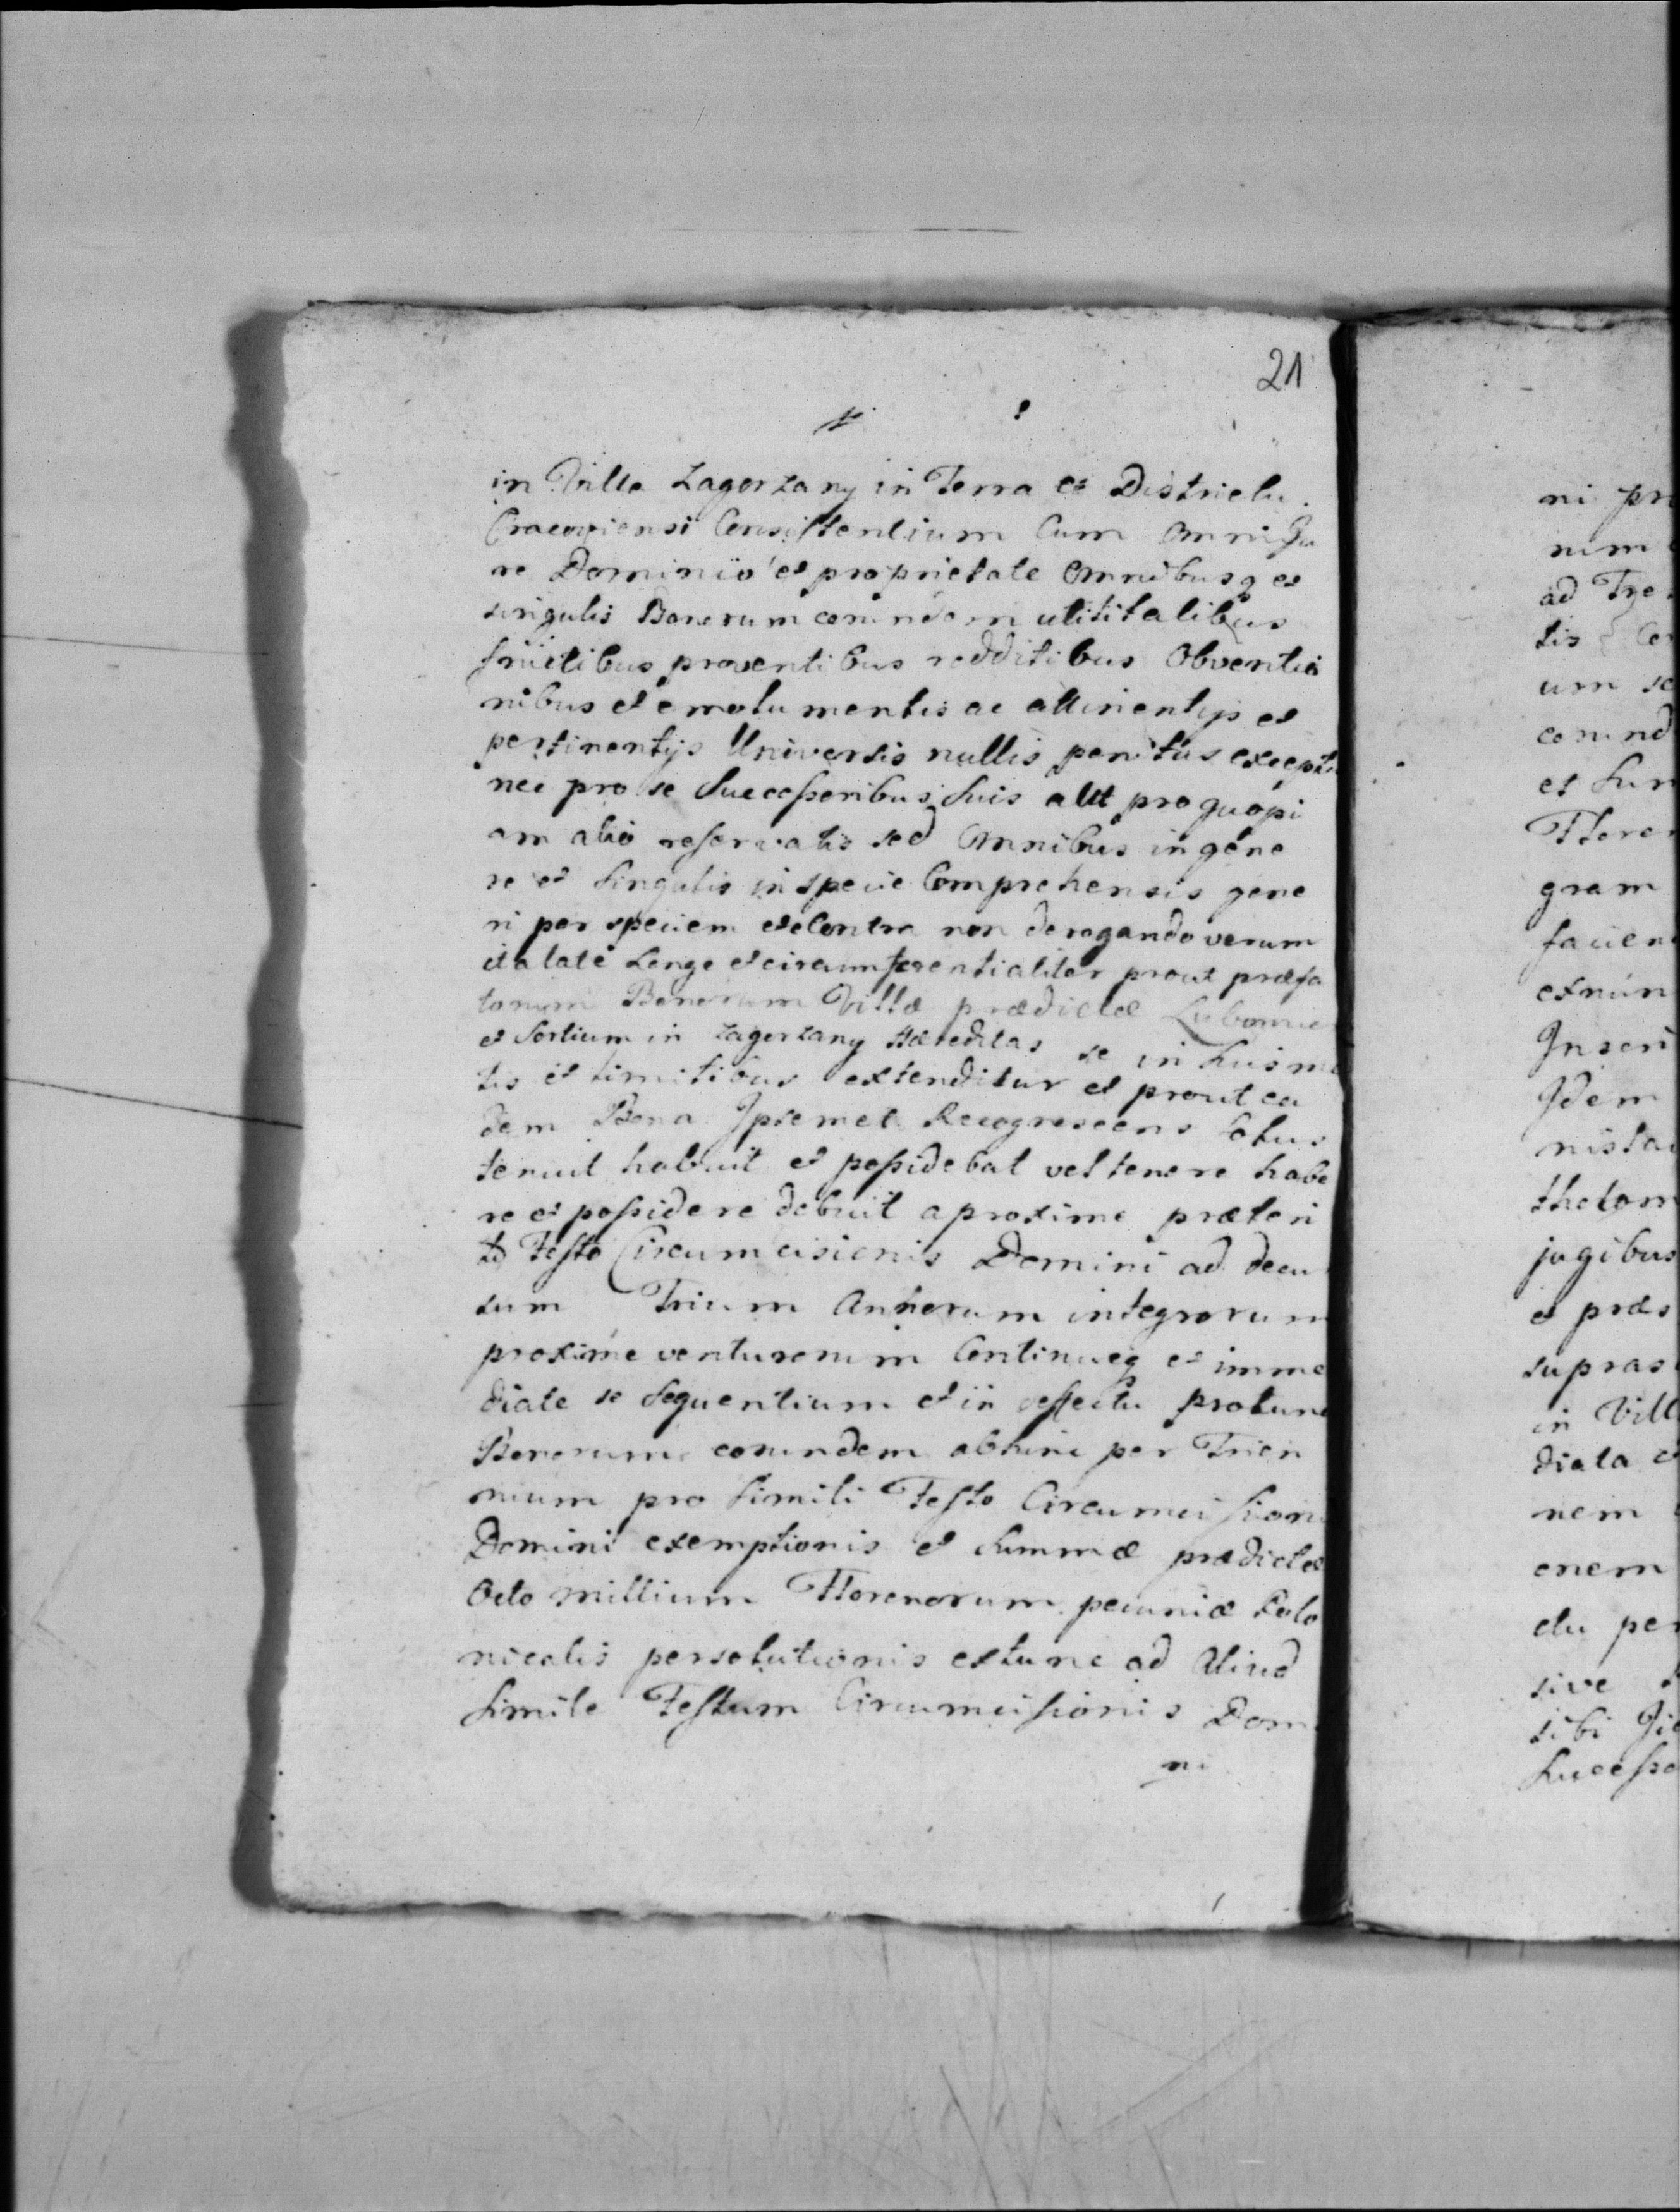 21
in Villa Zagorzany in Terra et Districtu
Cracoviensi Consistentium Cum Omni Ju
re Dominio et proprietate Omnibusq et
singulis Bonorum eorundem utilitalibus
fructibus proventibus redditibus Obventio
nibus et emolumentis ac attinentijs et
pertinentijs Universis nullis penitus excepti
nec pro se Successoribus suis aut pro quopi
am alio reservatis sed Omnibus in gene
re et singulis in specie Comprehensis gene
ri per speciem et e Contra non derogando verum
ita late Longe et circumferentialiter prout præfa
torum Bonorum Villæ prædictæ
et Sortium in Zagorzany Hæreditas se in suis me
tis et limitibus extenditur et prout ea
dem Bona Ipsemet Recognoscens totus
tenuit habuit et possidebat vel tenere habe
re et possidere debuit a proxime præteri
to Festo Circumcisionis Domini ad decu
sum Trium Annorum integrorum
proxime venturorum Continueq et imme
diate se Sequentium et in effectu pro tunc
Bonorum eorundem abhinc per Trien
nium pro simili Festo Circumcision
Domini exemptionis et Summæ prædictæ
Octo millium Florenorum pecuniæ Polo
nicalis persolutionis ex tunc ad Aliud
Simile Festum Circumcisionis Dom
ni
ni pr
num
ad Tre
tis Con
um se
eorund
et Sum
Floren
gram
facien
ex nun
Inscri
Idem
nisla
thelom
jugibus
et præs
supras
in Vill
dicta
nem
onem
ctu per
sive
sibi
Successo